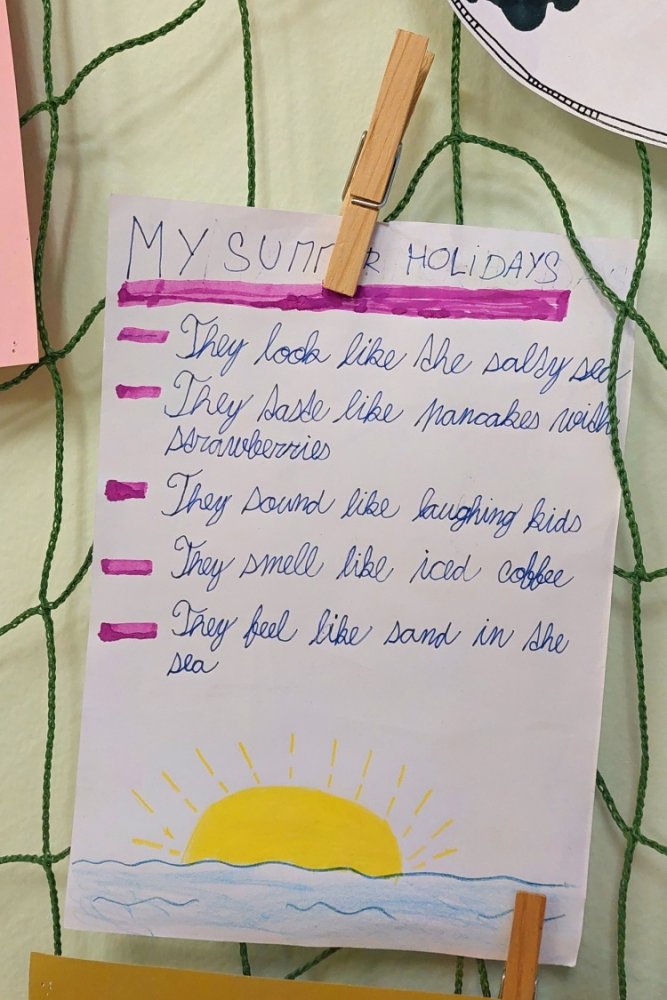 MY SUMMER HOLIDAYS
They look like the salty sea
They taste like pancakes with
strawberries
They sound like laughing kids
They smell like iced coffee
They feel like sand in the
sea